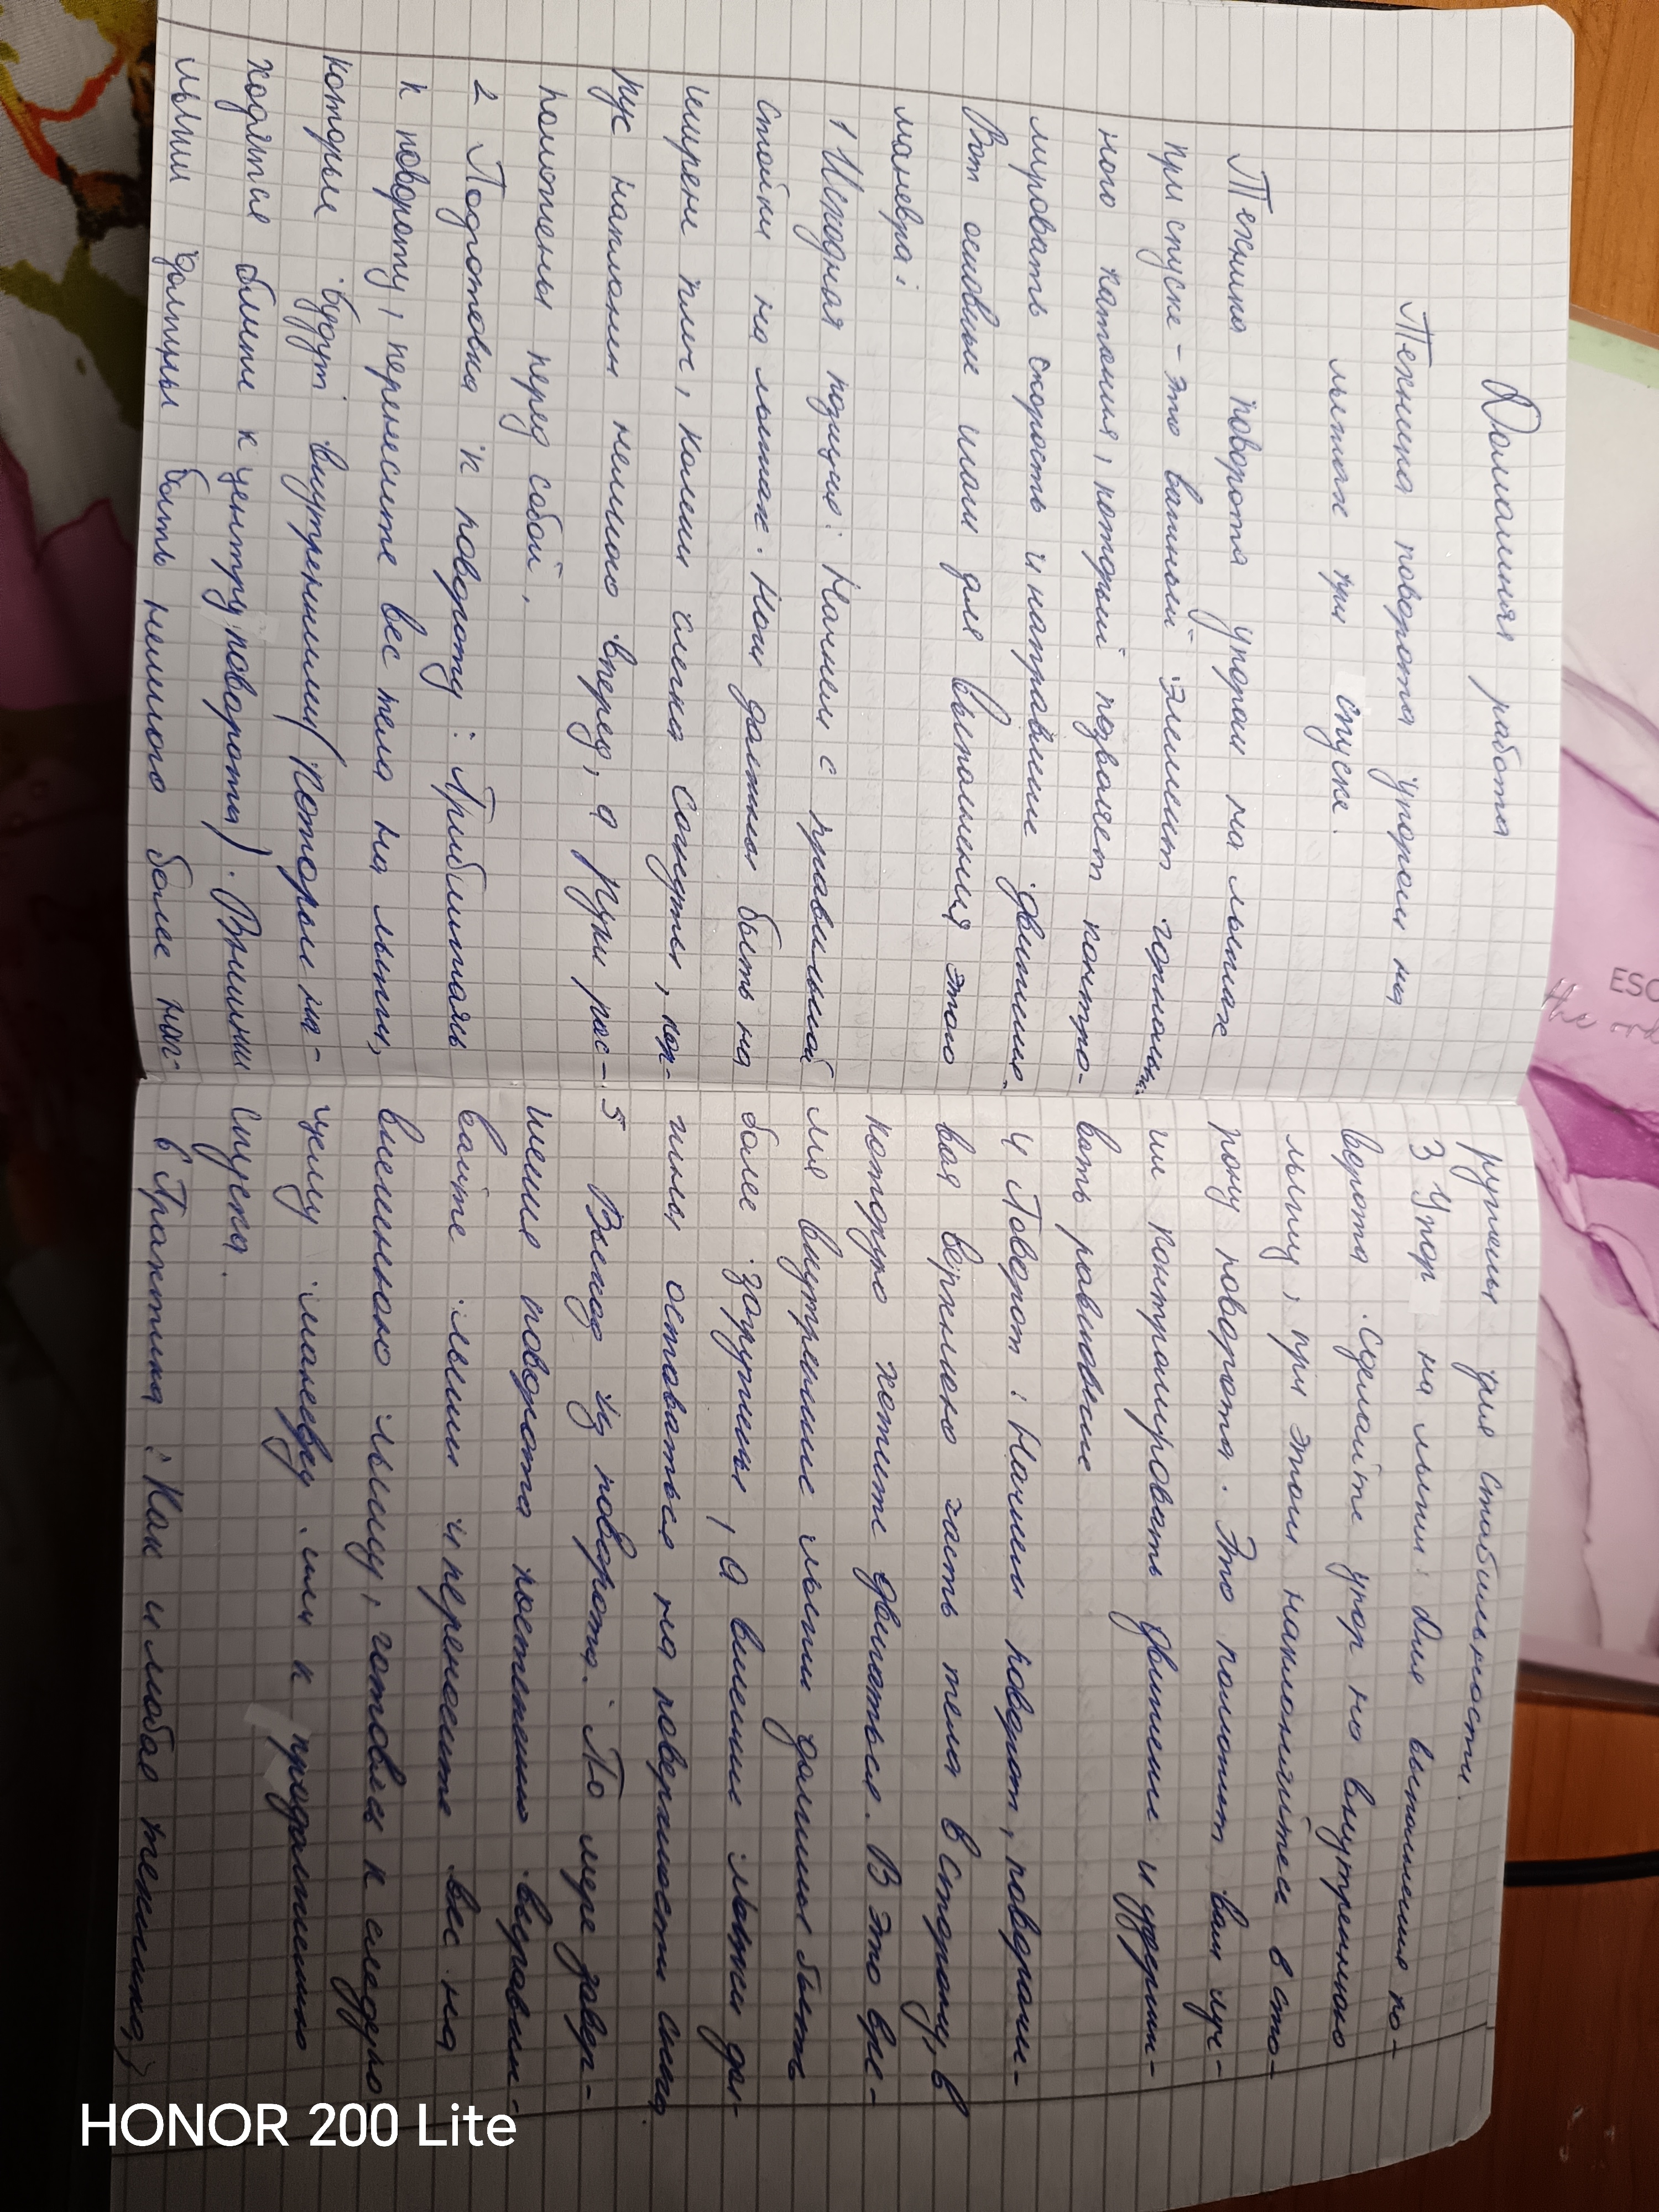 Домашняя работа
Техника поворота упором на
лыжах при спуске.
Техника поворота упором на лыжах
при спуске - это важный элемент горнолыж-
ного катания, который позволяет контро-
лировать скорость и направление движения.
Вот основные шаги для выполнения этого
маневра:
1 Исходная позиция: Начнем с правильной
стойки на лыжах. Ноги должны быть на
ширене плеч, колени слегка согнуты, кор-
пус наклонен немного вперед, а руки рас-
положены перед собой.
2 Подготовка к повороту: Приближаясь
к повороту, перенесите вес тела на лыжи,
которые будут внутренними (которые на-
ходятся ближе к центру поворота). Внешнии
лыжи должны быть немного более наг-
ружены для стабильности.
3 Упор на лыжи: Для выполнения по-
ворота сделайте упор на внутреннюю
лыжу, при этом наклоняйтесь в сто-
рону поворота. Это поможет вам луч-
ше контролировать движение и удержи-
вать равновесие
4 Поворот: Начнем поворот, поворачи-
вая верхнюю часть тела в сторону, в
которую хотите двигаться. В это вре-
мя внутренние лыжи должны быть
более загружены, а внешние лыжи до-
лжны оставаться на поверхности снега.
5 Выход из поворота: По мере завер-
шения поворота постепенно выравни-
вайте лыжи и переносите вес на
внешнюю лыжу, готовясь к следую-
щему маневру или к продолжению
спуска.
6 Практика: Как и любая техника,
ESC
the ord
HONOR 200 Lite